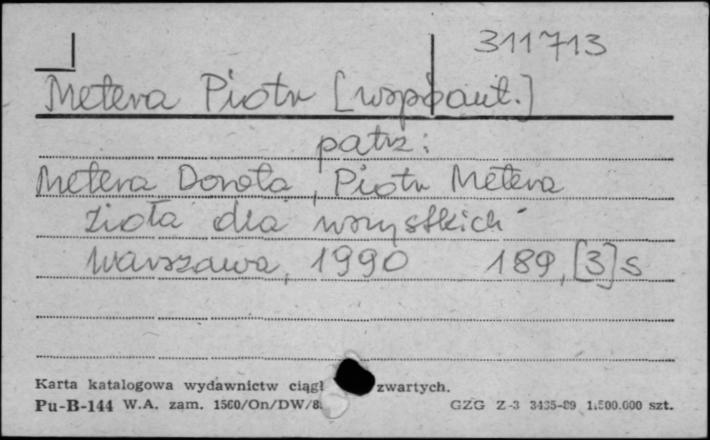 311713
Metera Piotr [współaut.]
patrz:
Metera Dorota, Piotr Metera
zioła dla wszystkich
Warszawa, 1990 189, [3] s
Karta katalogowa wydawnictw ciągł zwartych.
Pu-B-144 W.A. zam. 1560/On/DW/8 GZG Z-3 3435-89 1.500.000 szt.